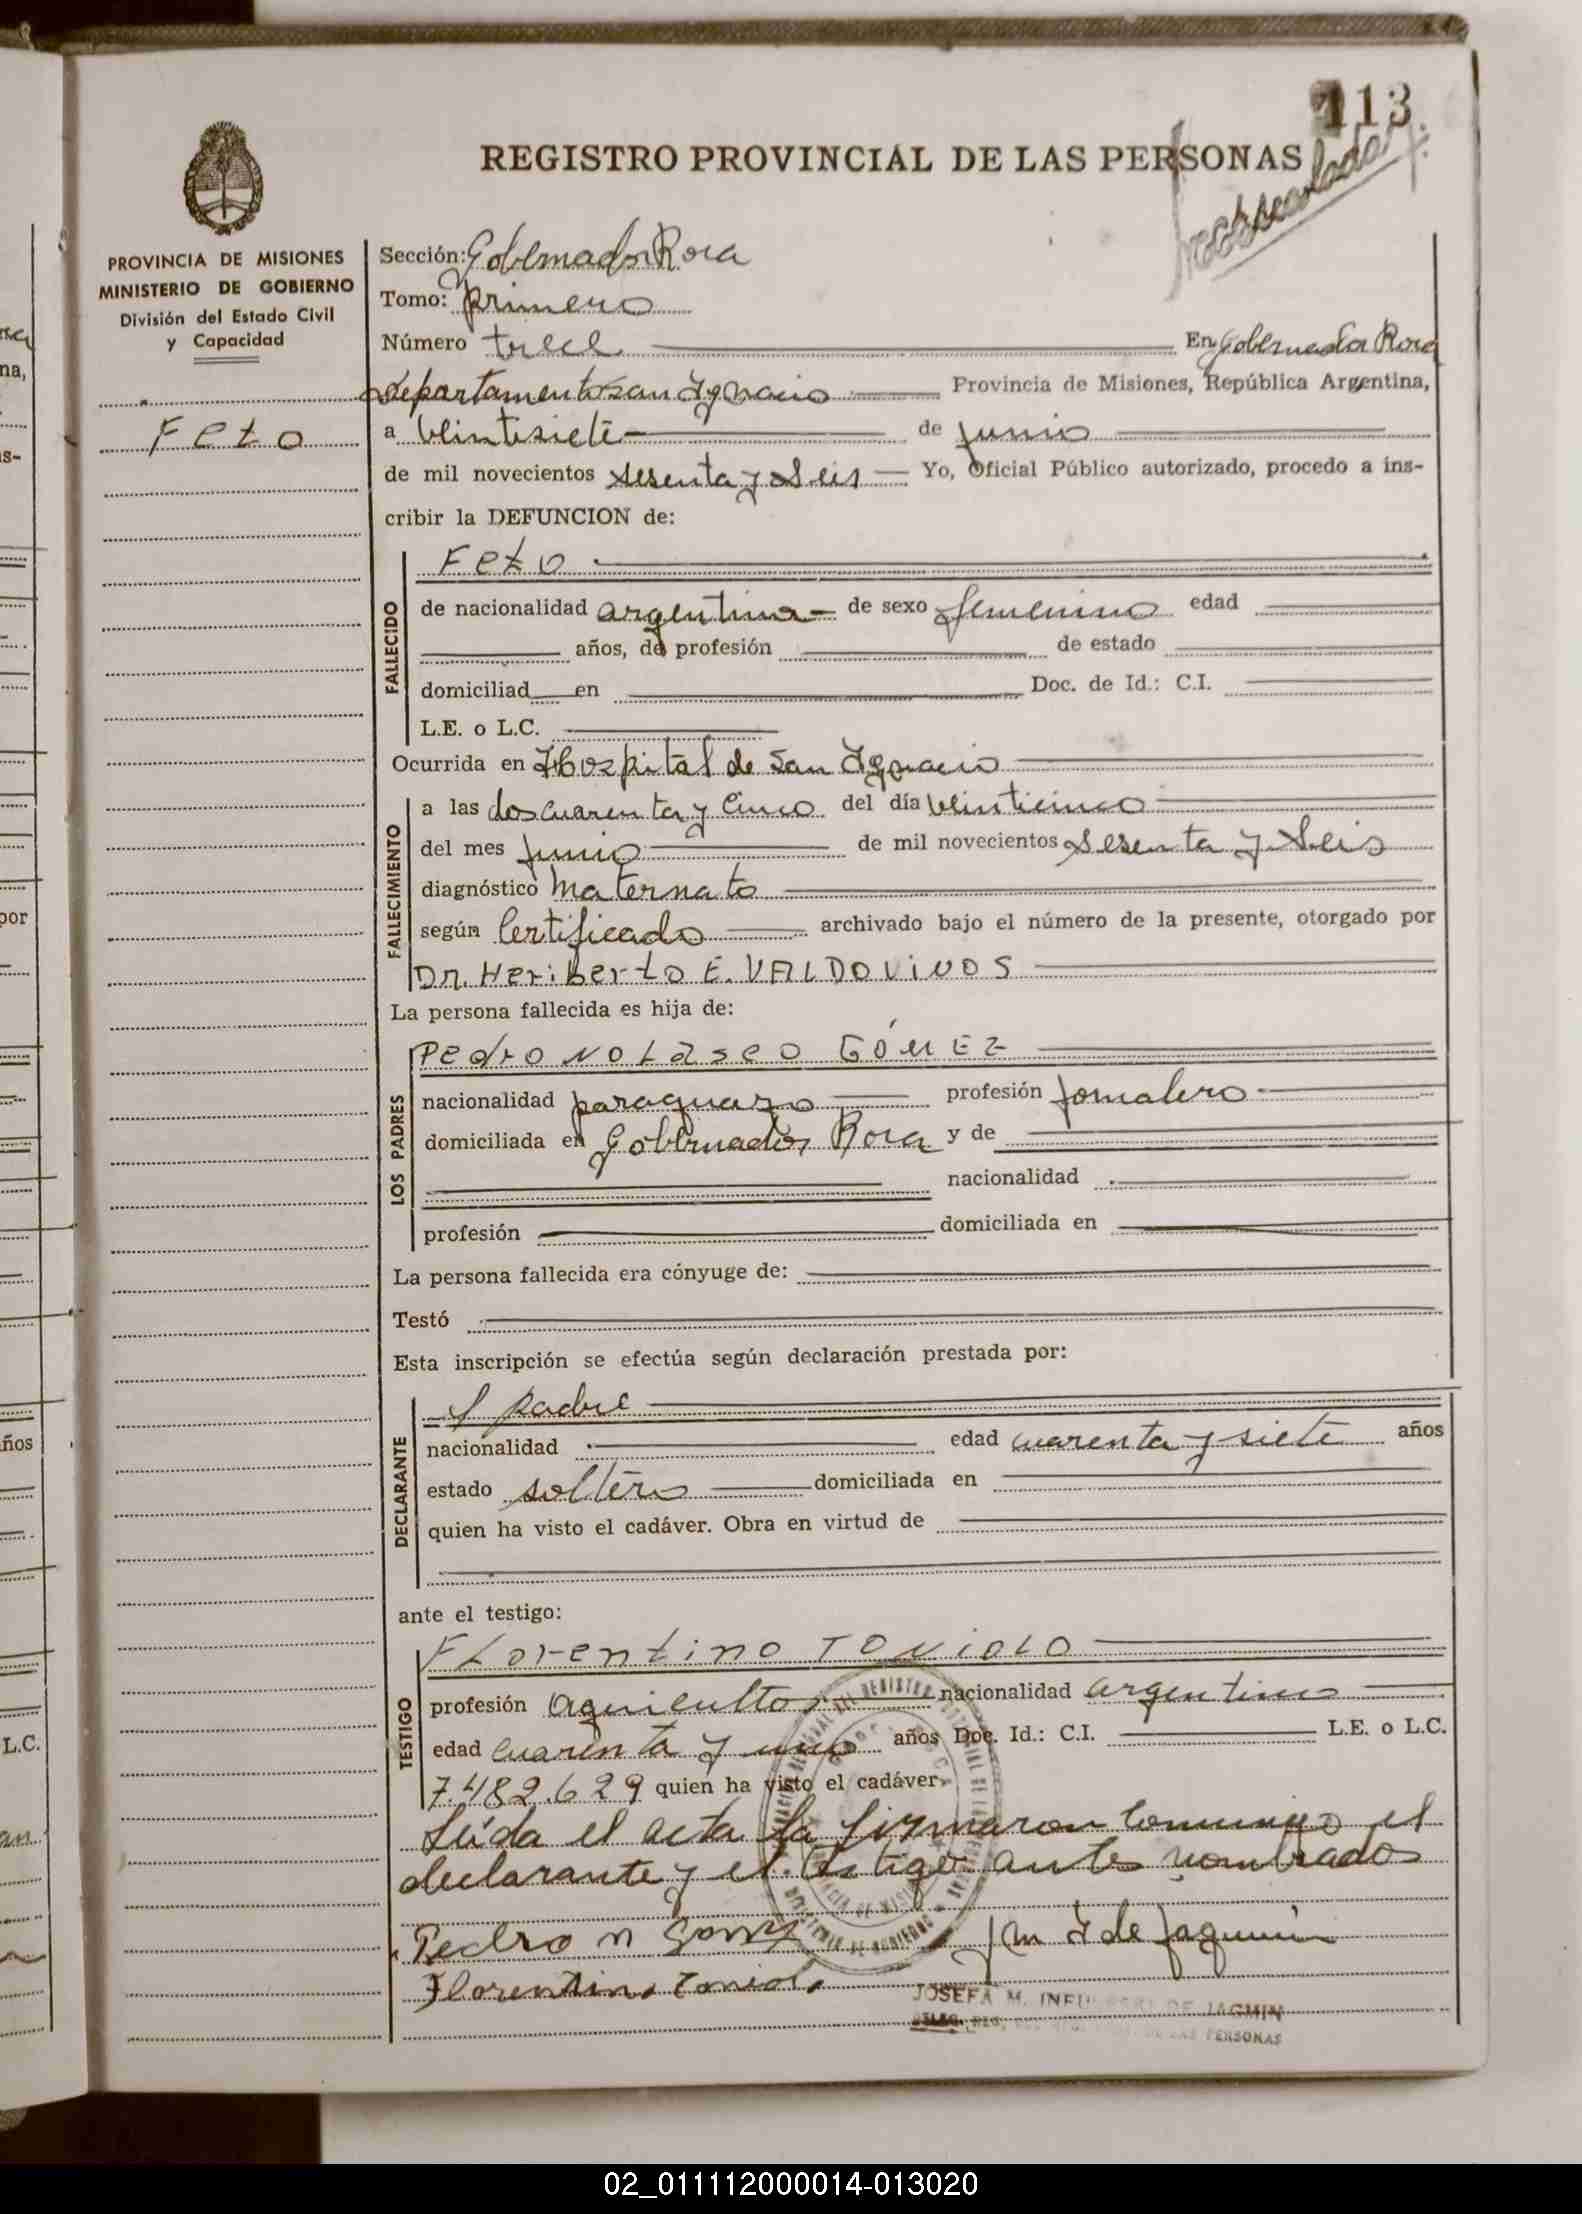 113
REGISTRO PROVINCIAL DE LAS PERSONAS
PROVINCIA DE MISIONES
MINISTERIO DE GOBIERNO
División del Estado Civil
y Capacidad
Feto
Sección: Gobernador Roca
Tomo: primero
Número trece En Gobernador Roca
departamento san Ignacio Provincia de Misiones, República Argentina,
a veintisiete de junio
de mil novecientos sesenta y seis Yo, Oficial Público autorizado, procedo a ins-
cribir la DEFUNCION de:
FALLECIDO
Feto
de nacionalidad argentina de sexo femenino edad
años, de profesión de estado
domiciliad en Doc. de Id.: C.I.
L.E. o L.C.
Ocurrida en Hospital de San Ignacio
FALLECIMIENTO
a las dos cuarenta y cinco del día veinticinco
del mes junio de mil novecientos sesenta y seis
diagnóstico maternato
según certificado archivado bajo el número de la presente, otorgado por
Dr. Heriberto E. VALDOVINOS
La persona fallecida es hija de:
LOS PADRES
Pedro NOLasco GÓMEZ
nacionalidad paraguayo profesión jornalero
domiciliada en Gobernador Roca y de
nacionalidad
profesión domiciliada en
La persona fallecida era cónyuge de:
Testó
Esta inscripción se efectúa según declaración prestada por:
DECLARANTE
padre
nacionalidad edad cuarenta y siete años
estado soltero domiciliada en
quien ha visto el cadáver. Obra en virtud de
ante el testigo:
TESTIGO
FLorentino TONIOLO
profesión agricultor nacionalidad argentino
edad cuarenta y uno años Doc. Id.: C.I. L.E. o L.C.
7.482.629 quien ha visto el cadáver.
Leída el acta la firmaron conmigo el
declarante y el testigo antes nombrados
Pedro N Gomez
Florentino Toniolo
JOSEFA M. DE JAGMIN
DE LAS PERSONAS
02_011112000014-013020